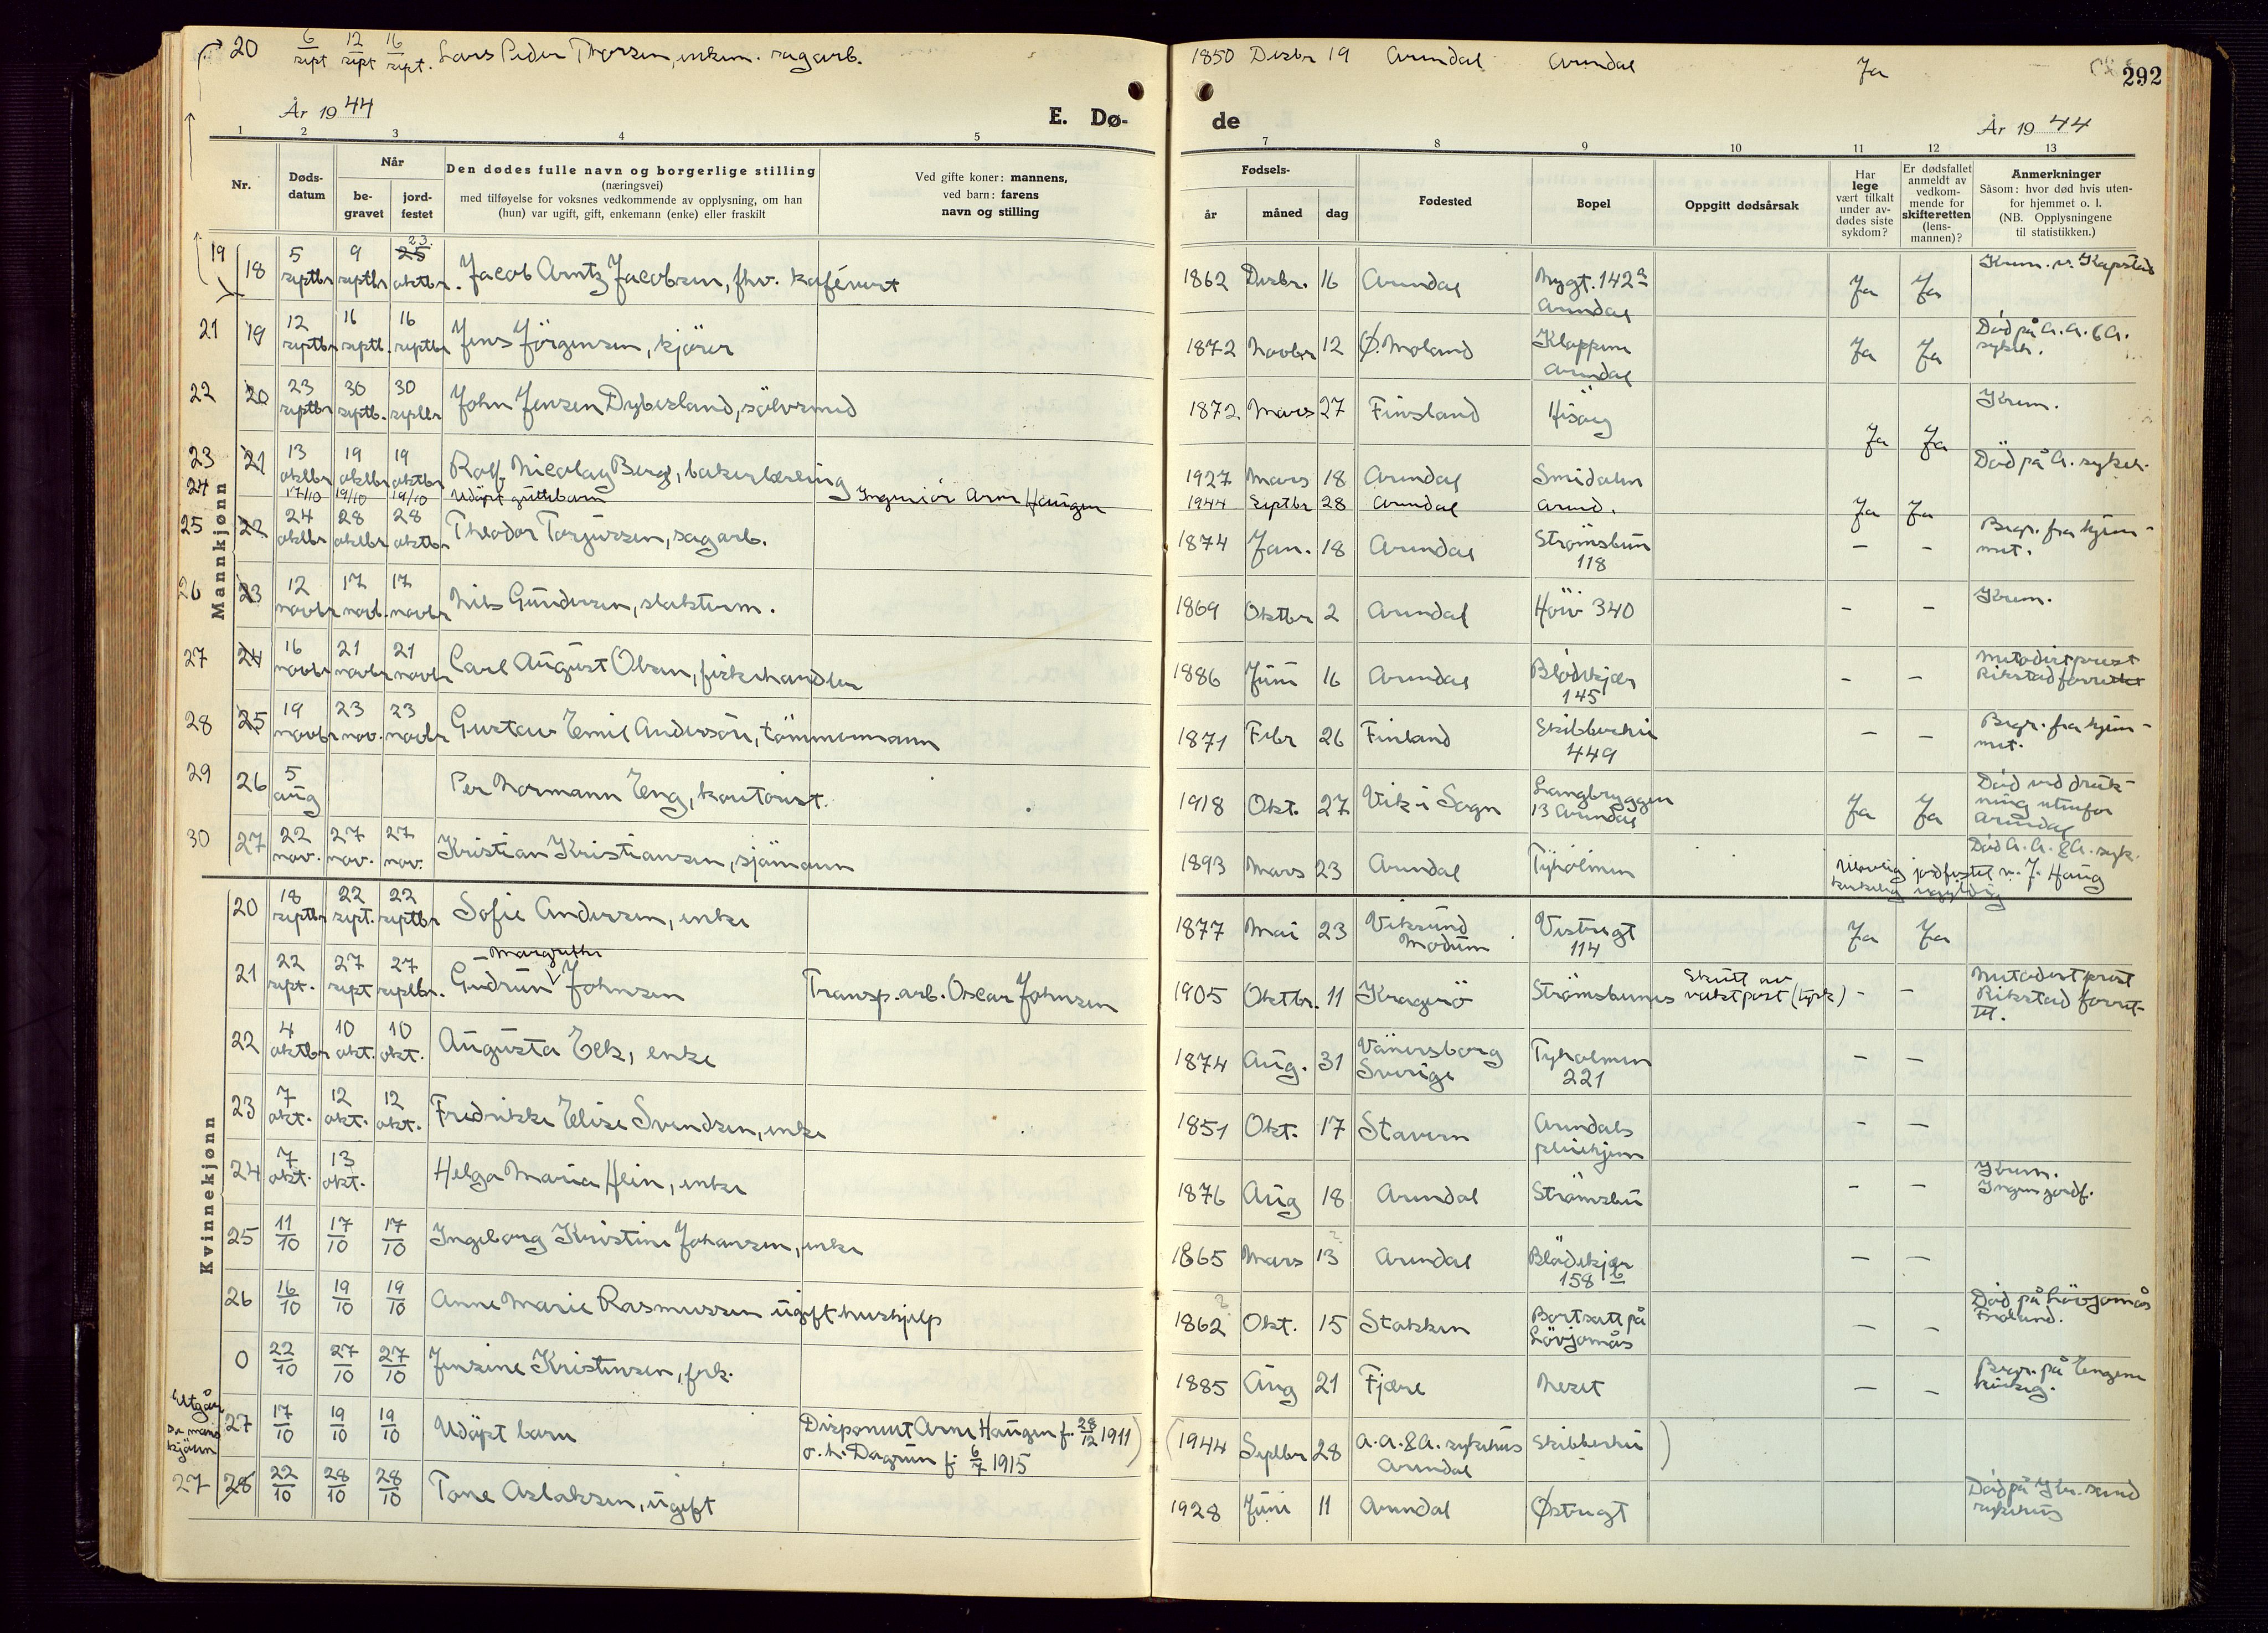 20 6/sept 12/sept 16/sept. Lars Peder Thorsen, enkem. sagarb. 1850 Desbr 19 Arendal Arendal Ja
292
År 1944 E. Dø-
de År 1944
1 2 3 4 5 7 8 9 10 11 12 13
Nr.
Døds-
datum
Når
be-
gravet
jord-
festet
Den dødes fulle navn og borgerlige stilling
(næringsvei)
med tilføyelse for voksnes vedkommende av opplysning, om han
(hun) var ugift, gift, enkemann (enke) eller fraskilt
Ved gifte koner: mannens,
ved barn: farens
navn og stilling
Fødsels-
år måned dag
Fødested
Bopel
Oppgitt dødsårsak
Har
lege
vært tilkalt
under av-
dødes siste
sykdom?
Er dødsfallet
anmeldt av
vedkom-
mende for
skifteretten
(lens-
mannen)?
Anmerkninger
Såsom: hvor død hvis uten-
for hjemmet o. l.
(NB. Opplysningene
til statistikken.)
Mannkjønn
19 18 5 septbr 9 septbr 25 23. oktbr. Jacob Arntz Jacobsen, fhv. kafévert 1862 Desbr. 16 Arendal Nygt. 142a Arendal Ja Ja Krem. v. Kapstad
21 19 12 septbr 16 septb. 16 septbr Jens Jörgensen, kjörer 1872 Novbr 12 Ø. Moland Kloppene Arendal Ja Ja Död på A. A. & A. sykeh.
22 20 23 septbr 30 septb. 30 septbr John Jensen Dybesland, sölvsmed 1872. Mars 27 Finsland Hisöy Ja Ja Krem.
23 21 13 oktbr 19 oktbr 19 oktbr Rolf Nicolay Berg, bakerlærling 1927 Mars 18 Arendal Smidalen Död på A. sykeh.
24 17/10 19/10 19/10 Udöpt guttebarn Ingeniör Arne Haugen 1944 Septbr 28 Arendal Arend. Ja Ja
25 22 24 oktbr 28 oktbr 28 oktbr Theodor Torjussen, sagarb. 1874 Jan. 18 Arendal Strömsbu 118 - - Begr. fra hjem-
met.
26 23 12 novbr 17 novb. 17 novbr Nils Gundersen, slakterm. 1869 Oktbr 2 Arendal Höiv 340 - - Krem.
27 24 16 novbr 21 novbr 21 novbr Carl August Olsen, fiskehandler 1886 Juni 16 Arendal Blödekjær 145 - - Metodistprest Rikstad forrettet
28 25 19 novbr 23 nov. 23 novbr Gustav Emil Anderson, tömmermann 1871 Febr 26 Finland Skibberhei 449 - - Begr. fra hjem-
met.
29 26 5 aug Per Normann Eng, kontorist. 1918 Okt. 27 Vik i Sogn Langbryggen 13 Arendal Ja Ja Död ved druk-
ning utenfor Arendal
30 27 22 nov. 27 nov. 27 nov. Kristian Kristiansen, sjömann 1893 Mars 23 Arendal Tyholmen Död A. A. & A. syk.
Ulovlig jordfestet v. J. Haug
kirkelig ugyldig
Kvinnekjønn
20 18 septbr 22 sept. 22 septbr Sofie Andersen, enke 1877 Mai 23 Viksund Modum Vestregt 114 Ja Ja
21 22 sept. 27 sept 27 septbr. Gudrun Margrethe Johnsen Transp.arb. Oscar Johnsen 1905 Oktbr. 11 Kragerö Strömsbunes Skutt av vaktpost (tysk) - - Metodistprest Rikstad forret-
tet.
22 4 oktbr 10 okt. 10 okt. Augusta Eek, enke 1874 Aug. 31 Vänersborg Sverige Tyholmen 221 - -
23 7 okt. 12 okt. 12 okt. Fredrikke Elise Svendsen, enke 1851 Okt. 17 Stavern Arendals pleiehjem - -
24 7 okt. 13 okt. Helga Maria Hein, enke 1876 Aug 18 Arendal Strömsbu - - Krem. Ingen jordf.
25 11/10 17/10 17/10 Ingeborg Kristine Johansen, enke 1865 Mars 13 ? Arendal Blödekjær 158 b - -
26 16/10 19/10 19/10 Anne Marie Rasmussen ugift hushjelp 1862 ? Okt. 15 Stokken Bortsatt på Lövjomås - - Död på Lövjomås Froland.
0 22/10 27/10 27/10 Jensine Kristensen, frk. 1885 Aug 21 Fjære Neset - - Begr. på Engene kirkeg.
Utgår
se mannkjönn
27 17/10 19/10 19/10 Udöpt barn Disponent Arne Haugen f. 28/12 1911) o. h. Dagrun f. 6/7 1915 (1944 Septbr 28 A. A. & A. sykehus Arendal Skibberhei )
27 28 22/10 28/10 28/10 Tone Aslaksen, ugift 1928 Juni 11 Arendal Østregt Död på Kr. sand sykehus